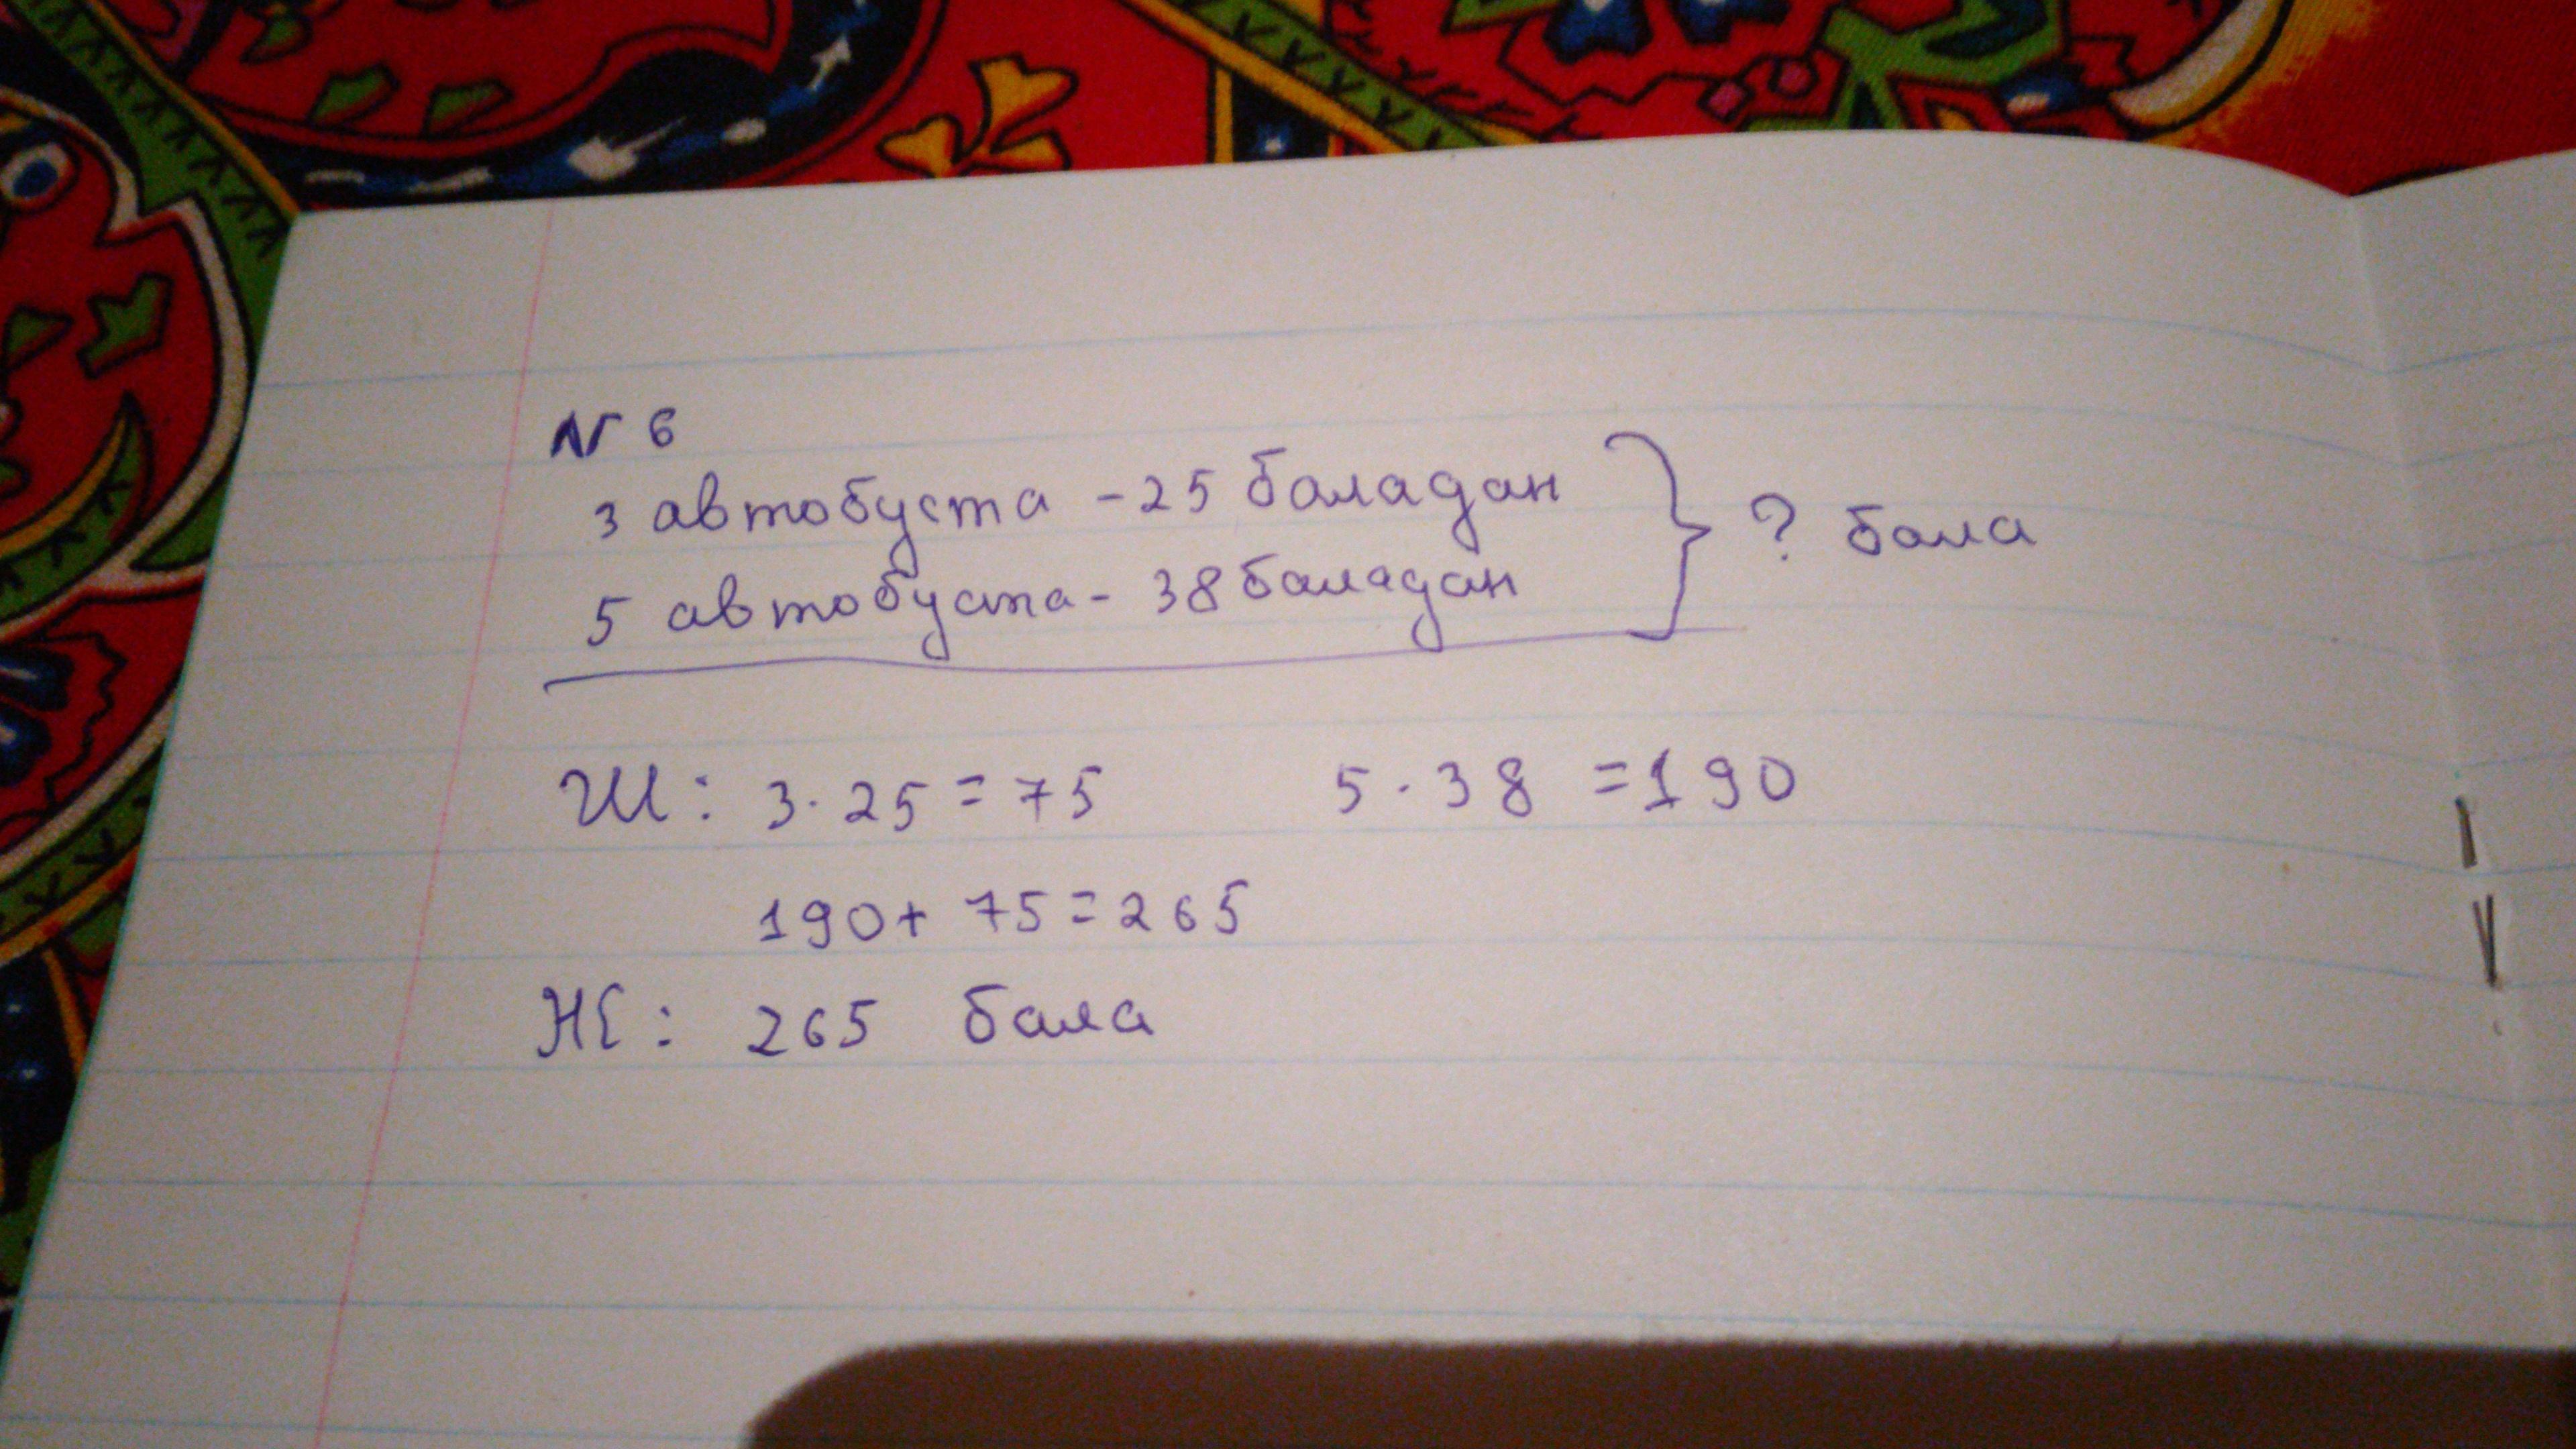 N 6
3 автобуста - 25 баладан
5 автобуста - 38 баладан } ? бала
Ш: 3 · 25 = 75 5 · 38 = 190
190 + 75 = 265
Ж: 265 бала